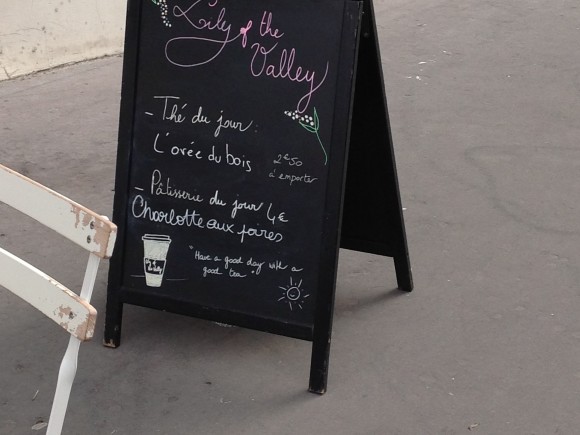 Lily of the
Valley
- Thé du jour :
L'orée du bois
2€50
à emporter
- Pâtisserie du jour 4€
Charlotte aux poires
"Have a good day with a
good tea"